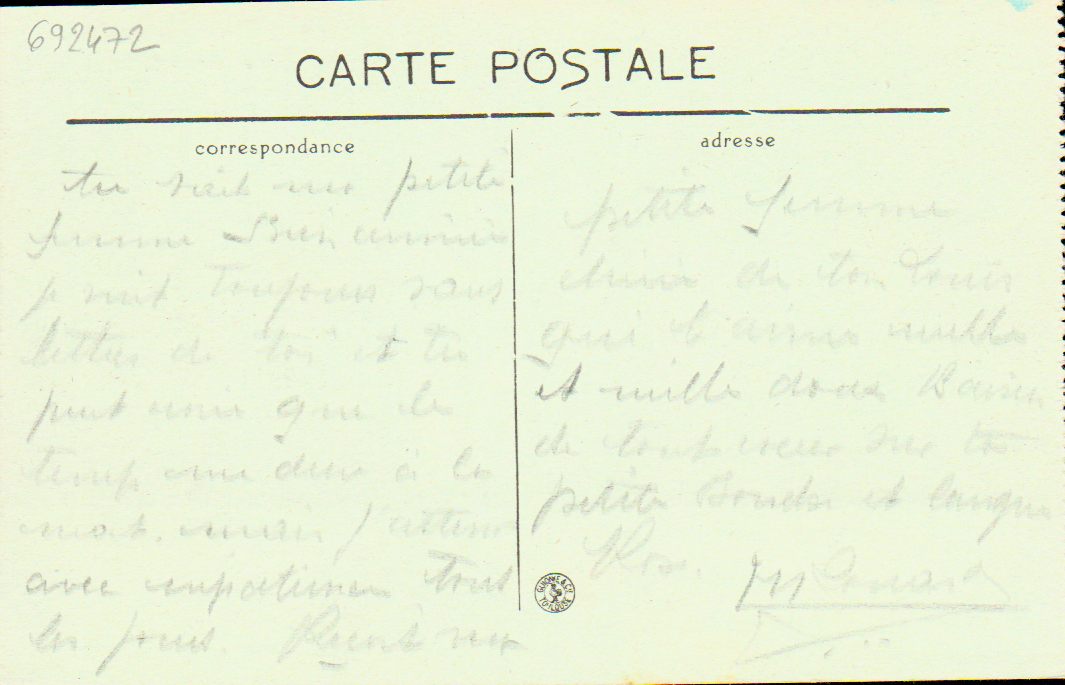 692472
CARTE POSTALE
correspondance
adresse
tu vait ma petite
femme Bien aimée
je suit toujours sans
lettres de toi et tu
peut voir que le
temp me dure à la
mort. mais j'attens
avec impatience tous
les jours. Reçoit ma
petite femme
cherie de ton Louis
qui t'aime mille
et mille doux Baiser
de tout cœur sur ta
petite Bouche et langue
GUIONIE & Cie
TOULOUSE